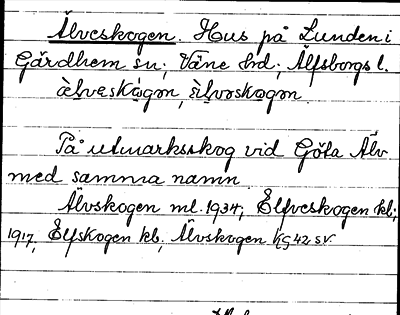 Älveskogen. Hus på Lunden i
Gärdhem sn; Väne hd; Älfsborgs l.
àlvəskógən, àlvəskogən
På utmarksskog vid Göta Älv
med samma namn
Älvskogen ml. 1934; Elfveskogen kb;
1917, Elfskogen kb, Älvskogen KG 42 sv